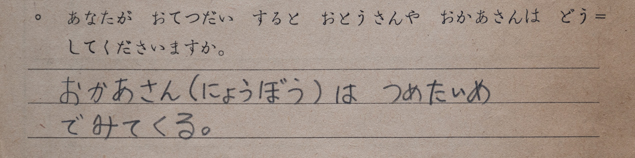 。 あなたが おてつだい すると おとうさんや おかあさんは どう=
してくださいますか。
おかあさん(にょうぼう)は つめたいめ
でみてくる。